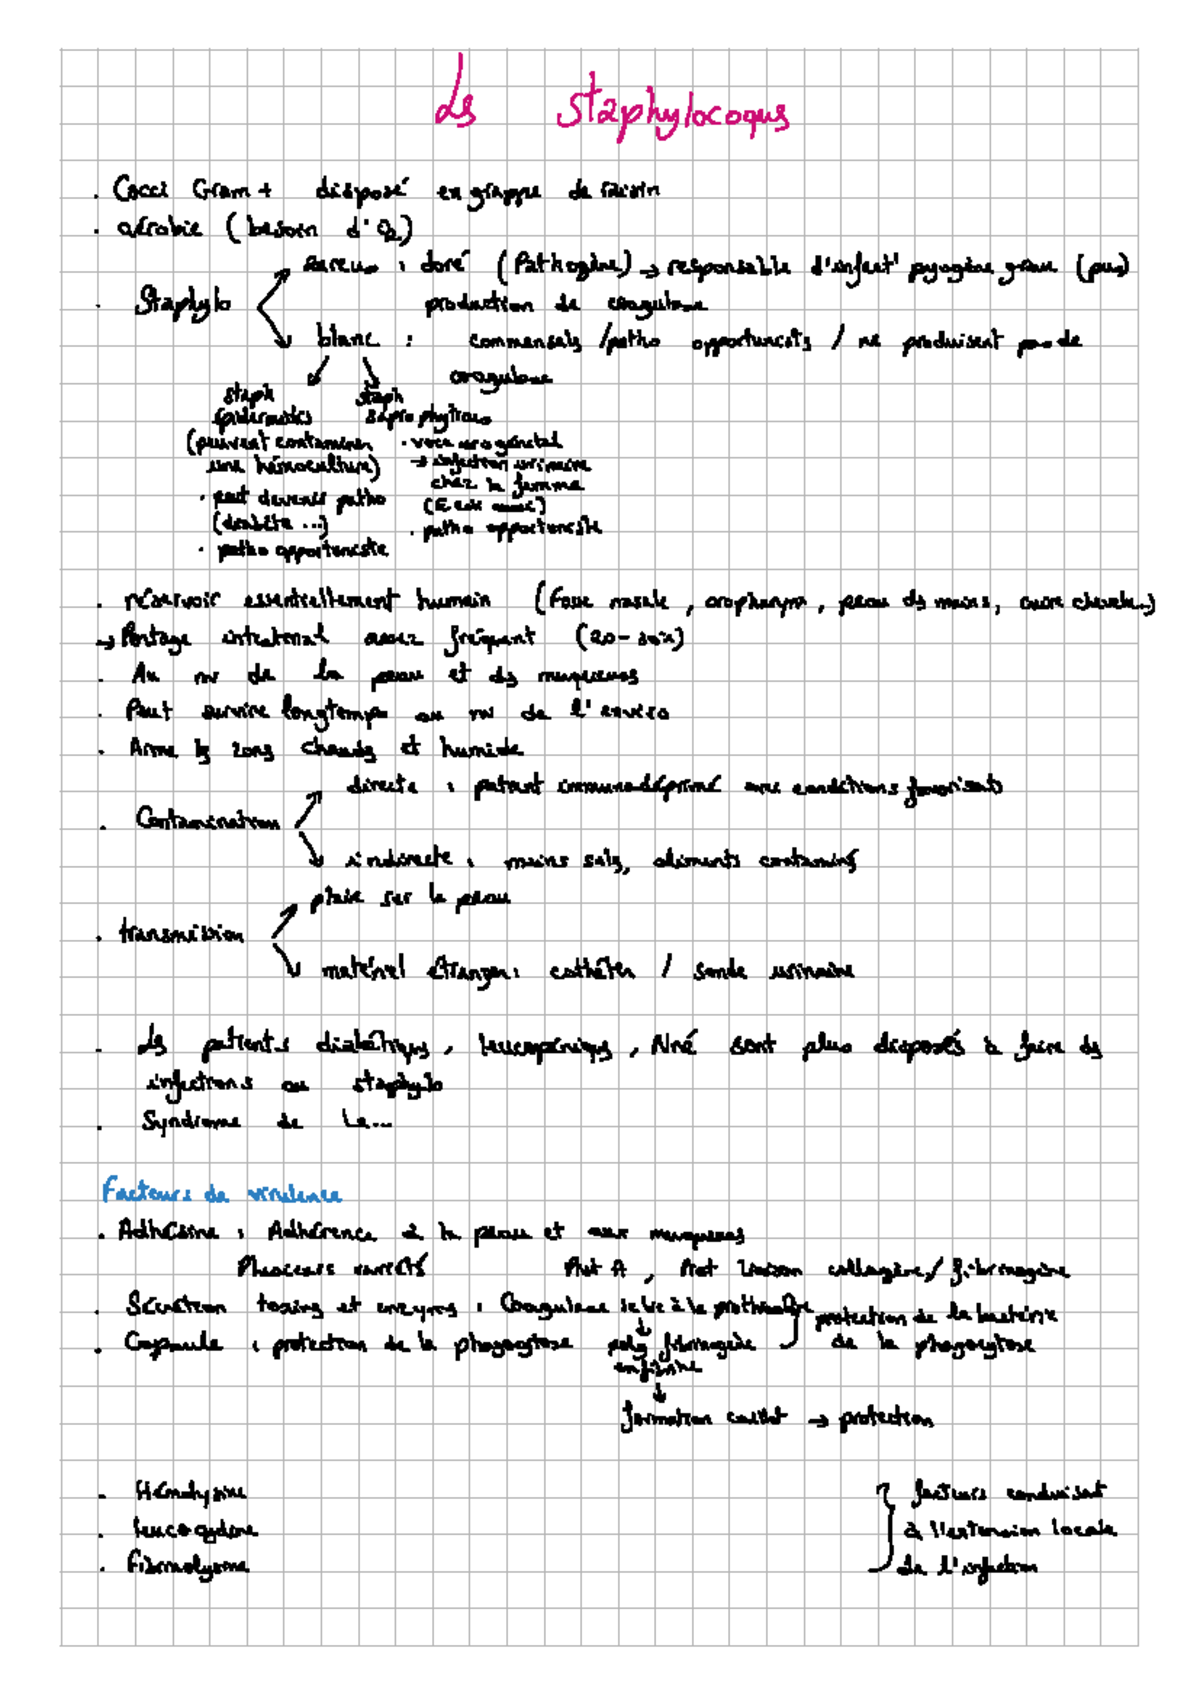 Ls staphylocoqus
. Cocci Gram + disposé en grappe de raisin
. aérobie (besoin d'O2)
aureus : doré (Pathogène) → responsable d'infect° pyogène grave (pus)
. Staphylo
production de coagulase
blanc : commensals /patho opportunists / ne produisent pas de
coagulase
staph
epidermidis
(peuvent contaminer
une hémoculture)
. peut devenir patho
(diabète ...)
. patho opportuniste
staph
saprophyticus
. voce urogénital
→ infection urinaire
chez la femme
(E. coli aussi)
. patho opportuniste
. réservoir essentiellement humain (Fosse nasale, oropharynx, peau ds mains, cuire chevelu..)
→ Portage intestinal assez fréquent (20-30%)
. Au nv de la peau et ds muqueuses
. Peut survivre longtemps au nv de l'enviro
. Aime ls zons chauds et humide
directe : patient immunodéprimé avec conditions favorisats
. Contamination
indirecte : mains sals, aliments contaminés
plaie sur la peau
. transmission
matériel étranger : cathéter / sonde urinaire
. Ls patients diabétiqus, leucopéniqus, Nné sont plus disposés à faire ds
infections au staphylo
. Syndrome de Le...
Facteurs de virulence
. Adhésine : Adhérence à la peau et aux muqueuses
Plusieurs variétés Prot A, Prot liaison collagène / fibrinogène
. Sécrétion toxins et enzyms : Coagulase se lie à la prothrombine
. Capsule : protection de la phagocytose
↓
poly fibrinogène
en fibrine
↓
formation caillot → protection
protection de la bactérie
de la phagocytose
. Hémolysine
. leucocydine
. Fibrinolysine
facteurs conduisant
à l'extension locale
de l'infection